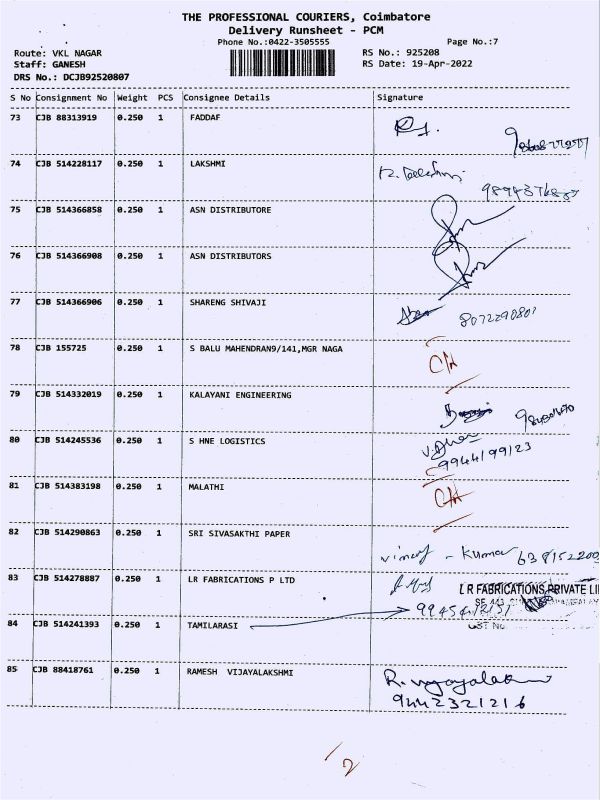 THE PROFESSIONAL COURIERS, Coimbatore
Delivery Runsheet - PCM
Phone No.:0422-3505555
Page No.:7
Route: VKL NAGAR
RS No.: 925208
Staff: GANESH
RS Date: 19-Apr-2022
DRS No.: DCJB92520807
S No Consignment No Weight PCS Consignee Details Signature
73 CJB 88313919 0.250 1 FADDAF
74 CJB 514228117 0.250 1 LAKSHMI
75 CJB 514366858 0.250 1 ASN DISTRIBUTORE
76 CJB 514366908 0.250 1 ASN DISTRIBUTORS
77 CJB 514366906 0.250 1 SHARENG SHIVAJI
8072290801
78 CJB 155725 0.250 1 S BALU MAHENDRAN9/141,MGR NAGA
79 CJB 514332019 0.250 1 KALAYANI ENGINEERING
80 CJB 514245536 0.250 1 S HNE LOGISTICS
9944199123
81 CJB 514383198 0.250 1 MALATHI
82 CJB 514290863 0.250 1 SRI SIVASAKTHI PAPER
- Kumar
83 CJB 514278887 0.250 1 LR FABRICATIONS P LTD
L R FABRICATIONS PRIVATE LI
84 CJB 514241393 0.250 1 TAMILARASI
GST No
85 CJB 88418761 0.250 1 RAMESH VIJAYALAKSHMI
9442321216
2